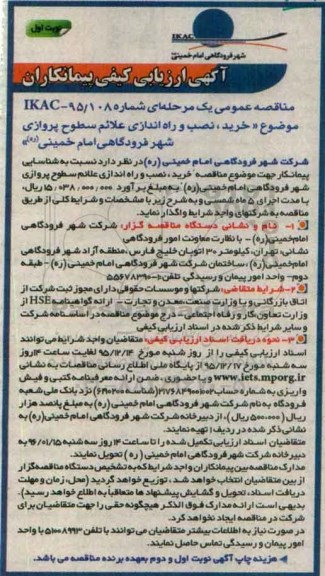 نوبت اول
IKAC
شهر فرودگاهی امام خمینی (ره)
آگهی ارزیابی کیفی پیمانکاران
مناقصه عمومی یک مرحله‌ای شماره IKAC-۹۵/۱۰۸
موضوع « خرید ، نصب و راه اندازی علائم سطوح پروازی
شهر فرودگاهی امام خمینی (ره)»
شرکت شهر فرودگاهی امام خمینی (ره) در نظر دارد نسبت به شناسایی
پیمانکار جهت موضوع مناقصه "خرید، نصب و راه اندازی علائم سطوح پروازی
شهر فرودگاهی امام خمینی(ره) به مبلغ برآورد ۱۵،۰۳۸،۰۰۰،۰۰۰ ریال،
با مدت اجرای ۵ ماه شمسی و به شرح زیر با مشخصات و شرایط کلی از طریق
مناقصه به شرکتهای واجد شرایط واگذار نماید.
۱- نام و نشانی دستگاه مناقصه گزار: شرکت شهر فرودگاهی
امام خمینی(ره) - با نظارت معاونت امور فرودگاهی
نشانی: تهران، کیلومتر ۳۰ اتوبان خلیج فارس، منطقه آزاد شهر فرودگاهی
امام خمینی(ره)، ساختمان شرکت شهر فرودگاهی امام خمینی (ره) - طبقه
دوم- واحد امور پیمان و رسیدگی تلفن
۲-شرایط متقاضی: شرکتها و موسسات حقوقی دارای مجوز ثبت شرکت از
اتاق بازرگانی و یا وزارت صنعت، معدن و تجارت - ارائه گواهینامه HSE از
وزارت تعاون کار و رفاه اجتماعی - درج موضوع مناقصه در اساسنامه شرکت
و سایر شرایط ذکر شده در اسناد ارزیابی کیفی
۳- نحوه دریافت اسناد ارزیابی کیفی: متقاضیان واجد شرایط می توانند
اسناد ارزیابی کیفی را از روز شنبه مورخ ۹۵/۱۲/۱۴ لغایت ساعت ۱۴ روز
سه شنبه مورخ ۹۵/۱۲/۱۷ از پایگاه ملی اطلاع رسانی مناقصات به نشانی
www.iets.mporg.ir و یا حضوری ، ضمن ارائه معرفینامه کتبی و فیش
واریزی به شماره حساب نزد بانک ملی شعبه
فرودگاه به نام شرکت شهر فرودگاهی امام خمینی (ره) به مبلغ پانصد هزار
ریال (۵۰۰،۰۰۰ ریال)، از دبیرخانه شرکت شهر فرودگاهی امام خمینی(ره) به
نشانی ذکر شده در ردیف ۱ تهیه نمایند.
متقاضیان اسناد ارزیابی تکمیل شده را تا ساعت ۱۴ روز سه شنبه ۹۶/۰۱/۱۵ به
دبیرخانه شرکت شهر فرودگاهی امام خمینی ( ره) تحویل نمایند.
مدارک مناقصه بین پیمانکاران واجد شرایط که به تشخیص دستگاه مناقصه گزار
از بین متقاضیان انتخاب خواهد شد، توزیع خواهد گردید (محل، زمان و مهلت
دریافت اسناد، تحویل و گشایش پیشنهاد ها متعاقباً به اطلاع خواهد رسید).
بدیهی است ارائه مدارک فوق الذکر هیچگونه حقی را جهت متقاضیان برای
شرکت در مناقصه ایجاد نخواهد کرد.
در صورت نیاز به اطلاعات بیشتر متقاضیان می توانند با تلفن ۵۱۰۰۸۹۹۳ با واحد
امور پیمان و رسیدگی تماس حاصل نمایند.
هزینه چاپ آگهی نوبت اول و دوم بعهده برنده مناقصه می باشد.